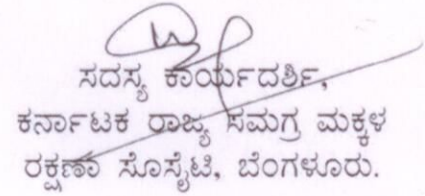 ಸದಸ್ಯ ಕಾರ್ಯದರ್ಶಿ,
ಕರ್ನಾಟಕ ರಾಜ್ಯ ಸಮಗ್ರ ಮಕ್ಕಳ
ರಕ್ಷಣಾ ಸೊಸೈಟಿ, ಬೆಂಗಳೂರು.